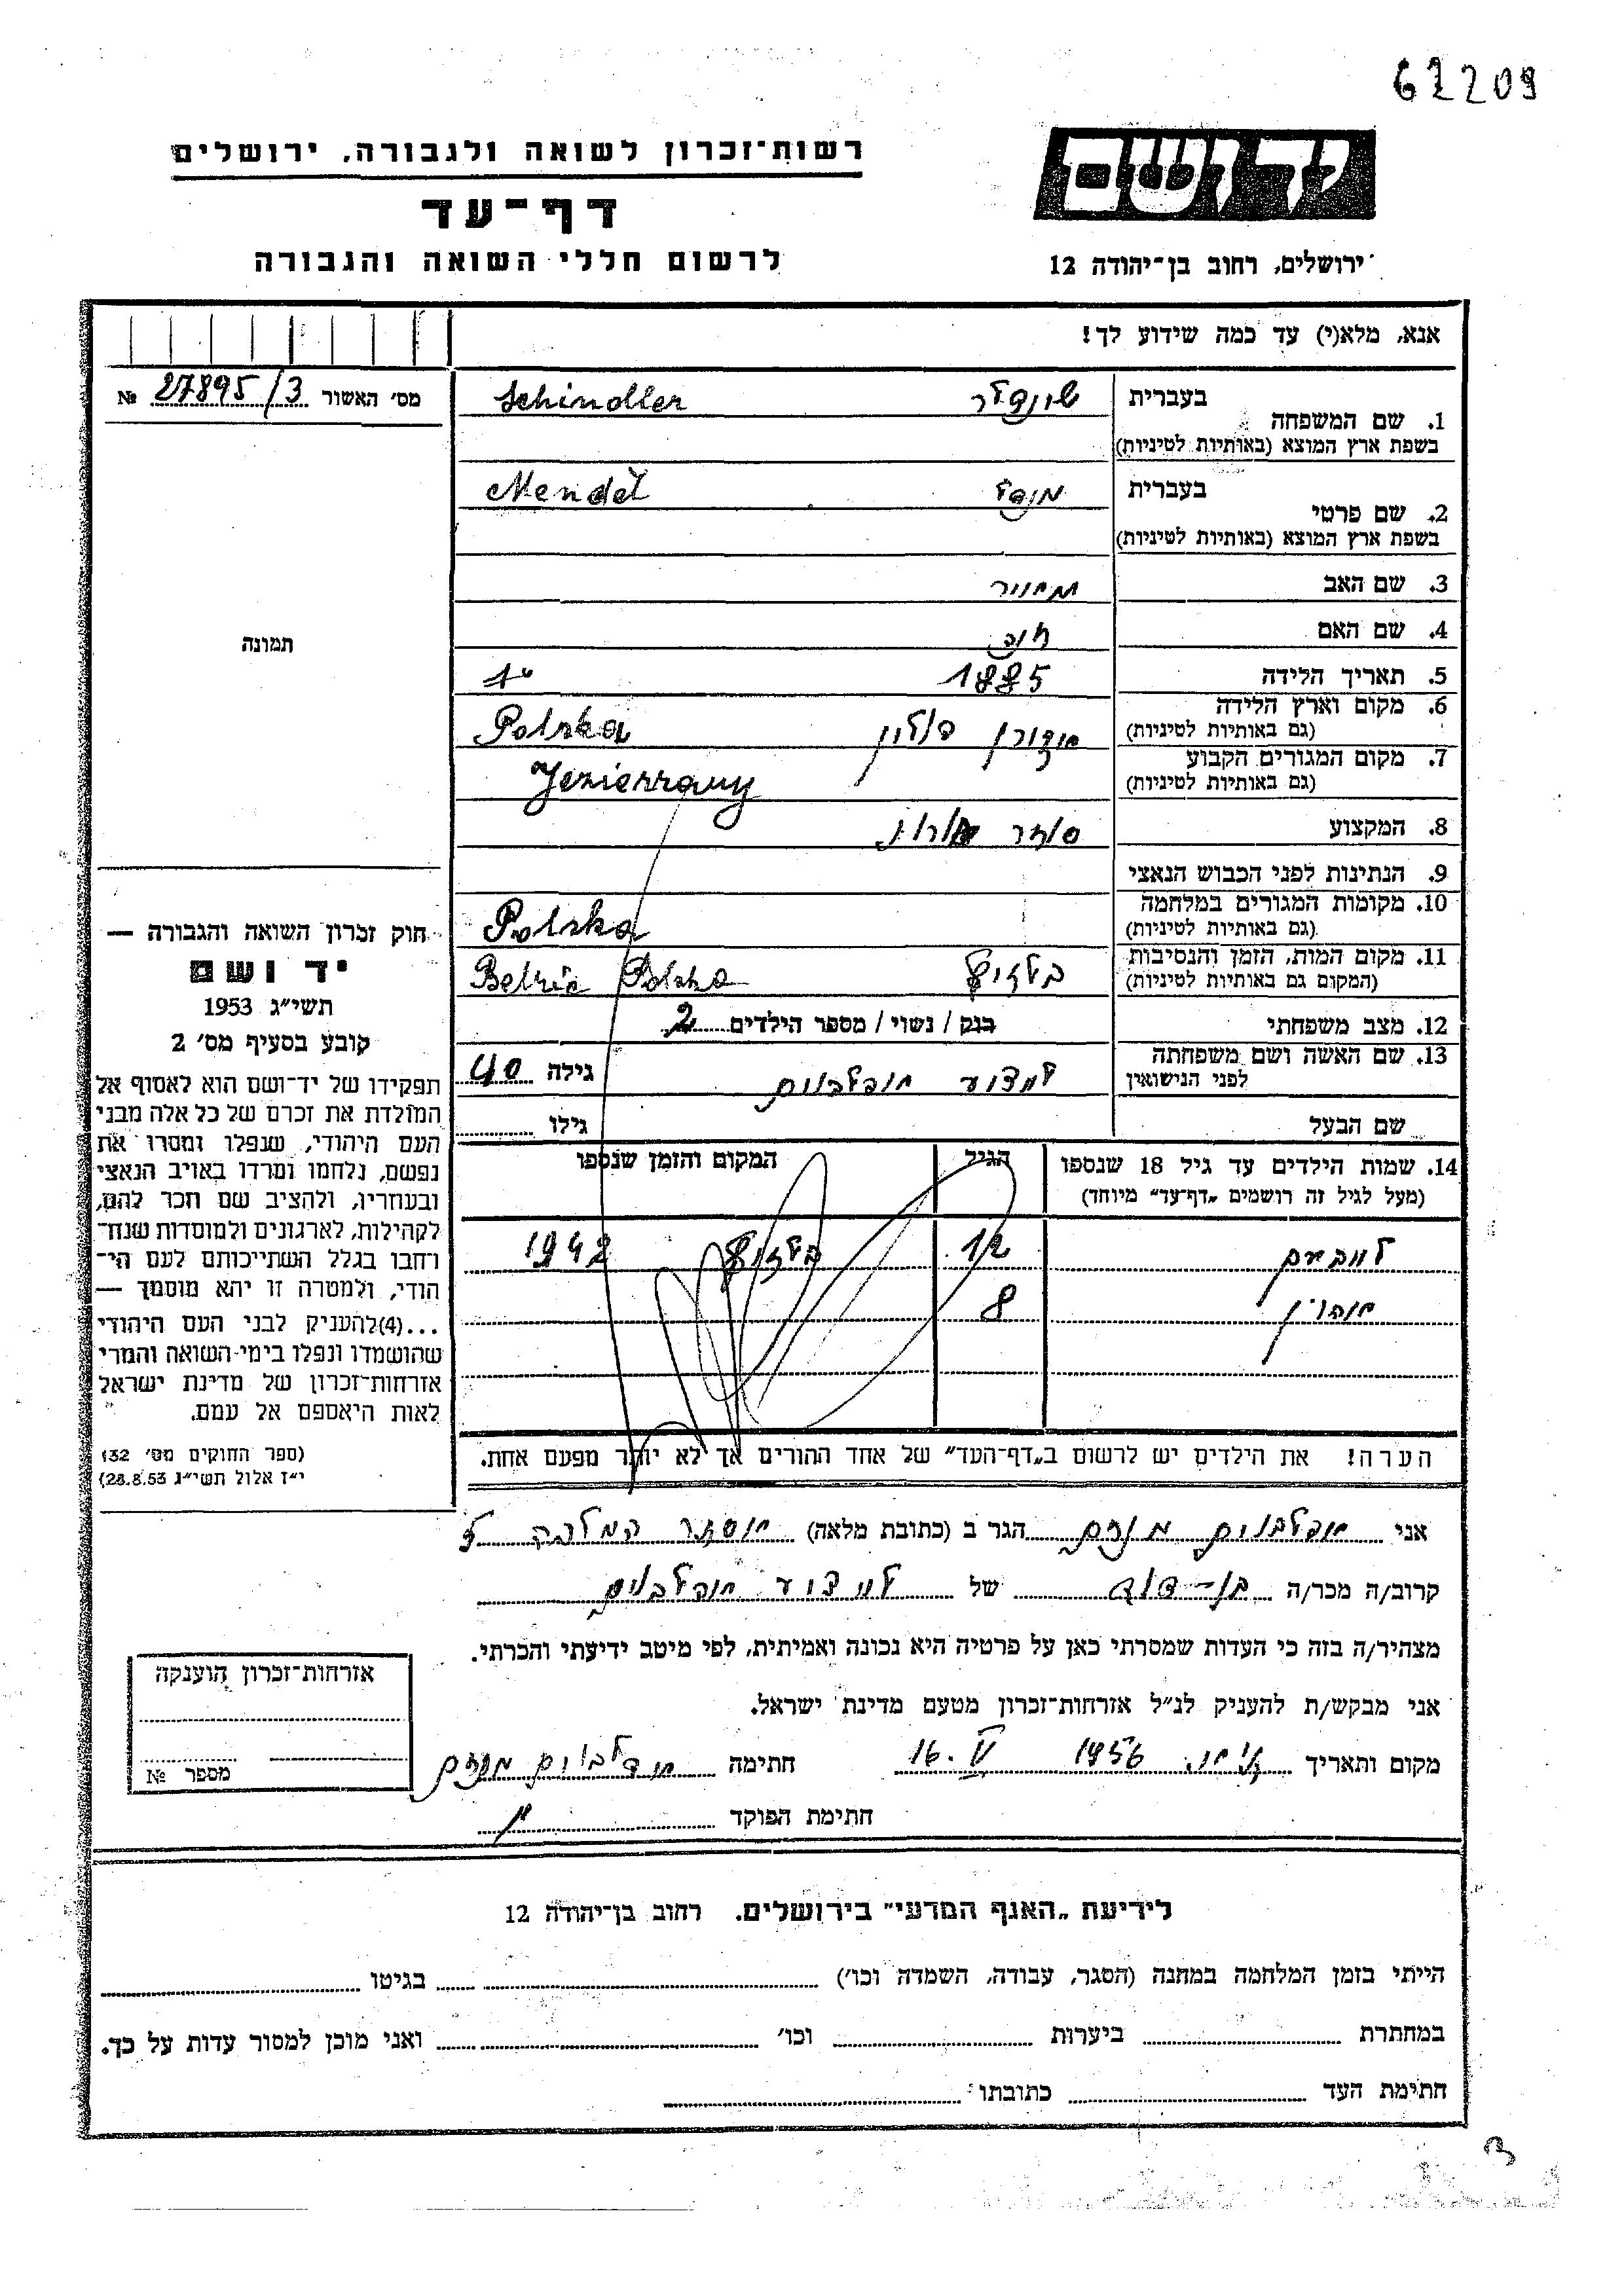 62209
רשות־זכרון לשואה ולגבורה, ירושלים
יד ושם
דף־עד
לרשום חללי השואה והגבורה
ירושלים, רחוב בן־יהודה 12
אנא, מלא(י) עד כמה שידוע לך!
מס׳ האשור 27895/3 №
תמונה
חוק זכרון השואה והגבורה —
יד ושם
תשי״ג 1953
קובע בסעיף מס׳ 2
תפקידו של יד־ושם הוא לאסוף אל
המולדת את זכרם של כל אלה מבני
העם היהודי, שנפלו ומסרו את
נפשם, נלחמו ומרדו באויב הנאצי
ובעוזריו, ולהציב שם וזכר להם,
לקהילות, לארגונים ולמוסדות שנח־
רחבו בגלל השתייכותם לעם הי־
הודי, ולמטרה זו יהא מוסמך —
...(4) להעניק לבני העם היהודי
שהושמדו ונפלו בימי־השואה והמרי
אזרחות־זכרון של מדינת ישראל
לאות היאספם אל עמם.
(ספר החוקים מס׳ 132
י״ז אלול תשי״ג 28.8.53)
1. שם המשפחה בעברית שינדלר Schindler
בשפת ארץ המוצא (באותיות לטיניות)
2. שם פרטי בעברית מנדל Mendel
בשפת ארץ המוצא (באותיות לטיניות)
3. שם האב
4. שם האם חוה
5. תאריך הלידה 1885
6. מקום וארץ הלידה פולין Polska
(גם באותיות לטיניות)
7. מקום המגורים הקבוע
(גם באותיות לטיניות)
8. המקצוע סוחר
9. הנתינות לפני הכבוש הנאצי
10. מקומות המגורים במלחמה Polska
(גם באותיות לטיניות)
11. מקום המות, הזמן והנסיבות Polska
(המקום גם באותיות לטיניות)
12. מצב משפחתי רווק / נשוי / מספר הילדים 2
13. שם האשה ושם משפחתה מנדלבוים גילה 40
לפני הנישואין
שם הבעל גילו
14. שמות הילדים עד גיל 18 שנספו הגיל המקום והזמן שנספו
(מעל לגיל זה רושמים „דף־עד״ מיוחד)
12 1942
8
הערה! את הילדים יש לרשום ב„דף־העד״ של אחד ההורים אך לא יותר מפעם אחת.
אני הגר ב (כתובת מלאה)
קרוב/ה מכר/ה בן־דוד של
מצהיר/ה בזה כי העדות שמסרתי כאן על פרטיה היא נכונה ואמיתית, לפי מיטב ידיעתי והכרתי.
אני מבקש/ת להעניק לנ״ל אזרחות־זכרון מטעם מדינת ישראל.
מקום ותאריך 16.V 1956 חתימה
חתימת הפוקד
אזרחות־זכרון הוענקה
מספר №
לידיעת „האגף המדעי״ בירושלים, רחוב בן־יהודה 12
הייתי בזמן המלחמה במחנה (הסגר, עבודה, השמדה וכו׳) בגיטו
במחתרת ביערות וכו׳ ואני מוכן למסור עדות על כך.
חתימת העד כתובתו